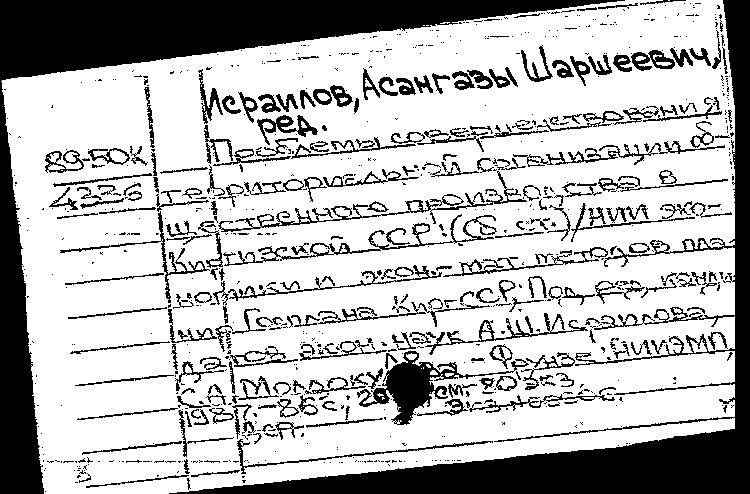 Исраилов, Асангазы Шаршеевич,
ред.
89-50К Проблемы совершенствования
4336 территориальной организации об-
щественного производства в
Киргизской ССР: (Сб. ст.) / НИИ эко-
номики и экон.-мат. методов пла-
нир. Госплана Кирг ССР; Под ред. канди-
датов экон. наук А.Ш. Исраилова,
С.А. Молдокулова. - Фрунзе: НИИЭМП,
1987. - 86 с.; 20 см. 20 экз.
Экз.
Деп.